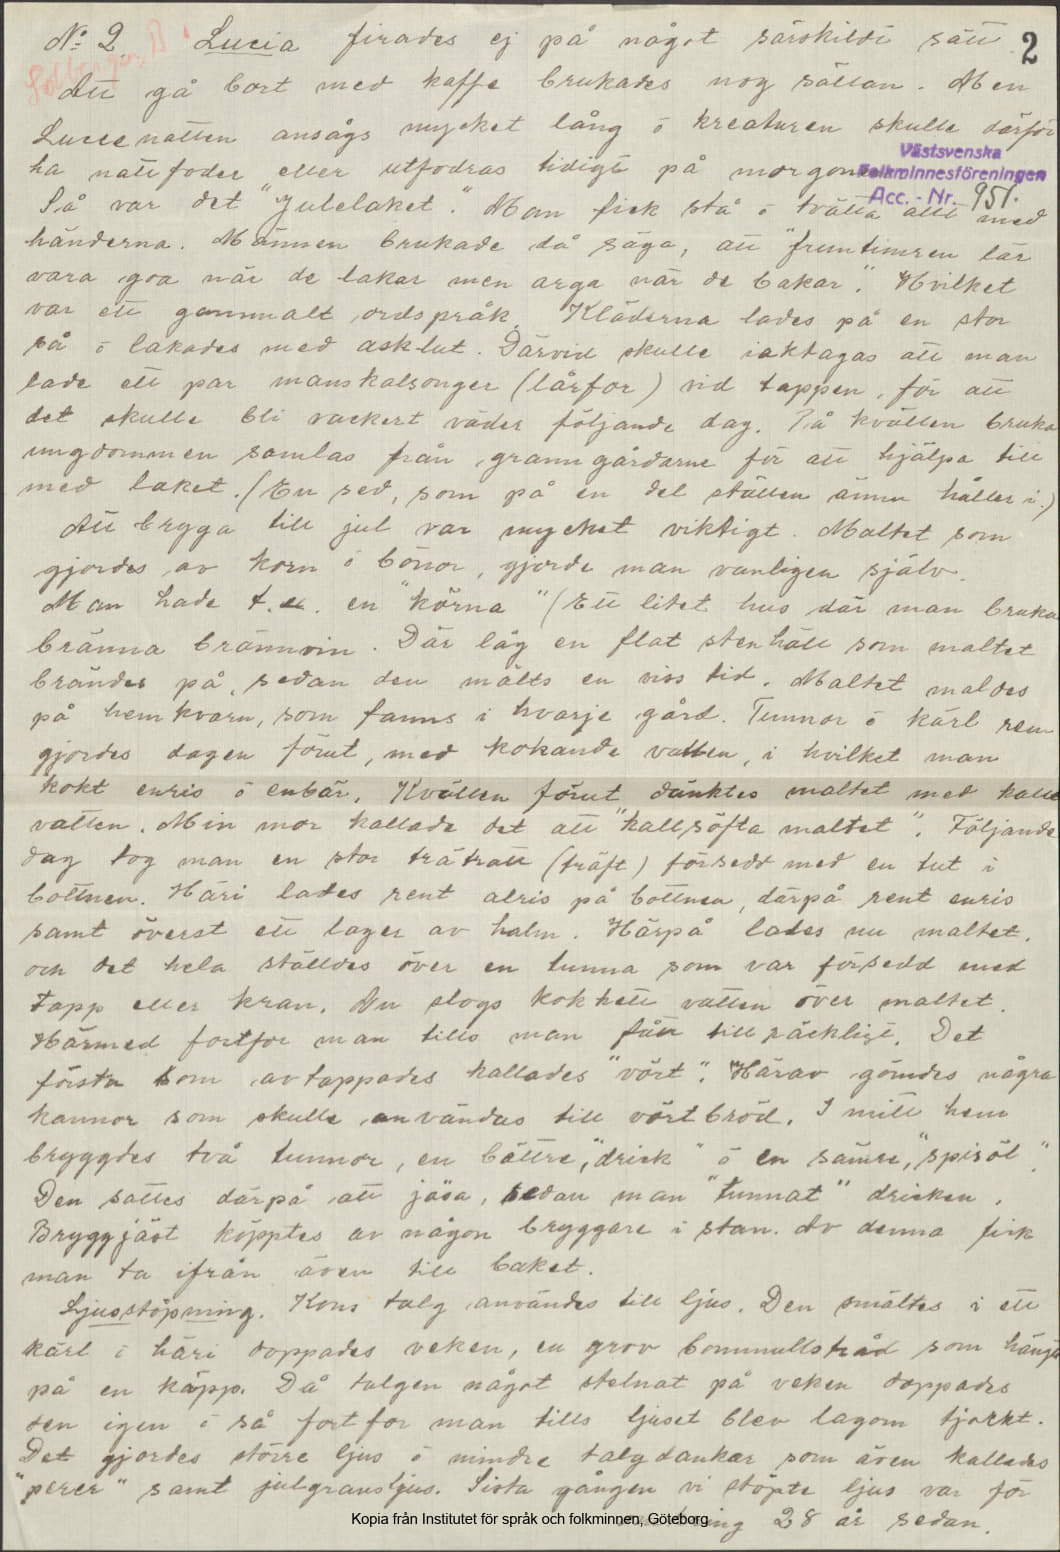 No 2 Lucia firades ej på något särskildt sätt. 2
Att gå bort med kaffe brukades nog sällan. Men
Luccenatten ansågs mycket lång o kreaturen skulle därför
ha nattfoder eller utfodras tidigt på morgonen
Västsvenska
Folkminnesföreningen
Acc. - Nr. 951.
Så var det "Julelaket". Man fick stå o tvätta allt med
händerna. Männen brukade då säga, att "fruntimren lär
vara goa när de lakar men arga när de bakar". Hvilket
var ett gammalt ordspråk. Kläderna lades på en stor
så o lakades med asklut. Därvid skulle iakttagas att man
lade ett par manskalsonger (lårfor) vid tappen, för att
det skulle bli vackert väder följande dag. På kvällen bruka
ungdommen samlas från granngårdarne för att hjälpa till
med laket. (En sed, som på en del ställen ännu håller i.)
Att brygga till jul var mycket viktigt. Maltet som
gjordes av korn o bönor, gjorde man vanligen själv.
Man hade t.ex. en "körna" (Ett litet hus där man bruka
bränna brännvin. Där låg en flat stenhäll som maltet
brändes på, sedan den mälts en viss tid. Maltet maldes
på hemkvarn, som fanns i hvarje gård. Tunnor o kärl ren-
gjordes dagen förut, med kokande vatten, i hvilket man
kokt enris o enbär. Kvällen förut dänktes maltet med kallt
vatten. Min mor kallade det att "kallsöfta maltet". Följande
dag tog man en stor trätratt (träft) försedt med en tut i
bottnen. Häri lades rent alris på bottnen, därpå rent enris
samt överst ett lager av halm. Härpå lades nu maltet,
och det hela ställdes över en tunna som var försedd med
tapp eller kran. Nu slogs kokhett vatten över maltet.
Härmed fortfor man tills man fått tillräckligt. Det
första som avtappades kallades "vört". Härav gömdes några
kannor som skulle användas till vörtbröd. I mitt hem
bryggdes två tunnor, en bättre, "drick" o en sämre, "spisöl".
Den sattes därpå att jäsa, sedan man "tunnat" dricken.
Bryggjäst köpptes av någon bryggare i stan. Av denna fick
man ta ifrån även till baket.
Ljusstöpning. Kons talg användes till ljus. Den smältes i ett
kärl o häri doppades veken, en grov bommullstråd som hängt
på en käpp. Då talgen något stelnat på veken doppades
den igen o så fortfor man tills ljuset blev lagom tjockt.
Det gjordes större ljus o mindre talgdankar som även kallades
"perer" samt julgransljus. Sista gången vi stöpte ljus var för
omkring 28 år sedan.
Kopia från Institutet för språk och folkminnen, Göteborg